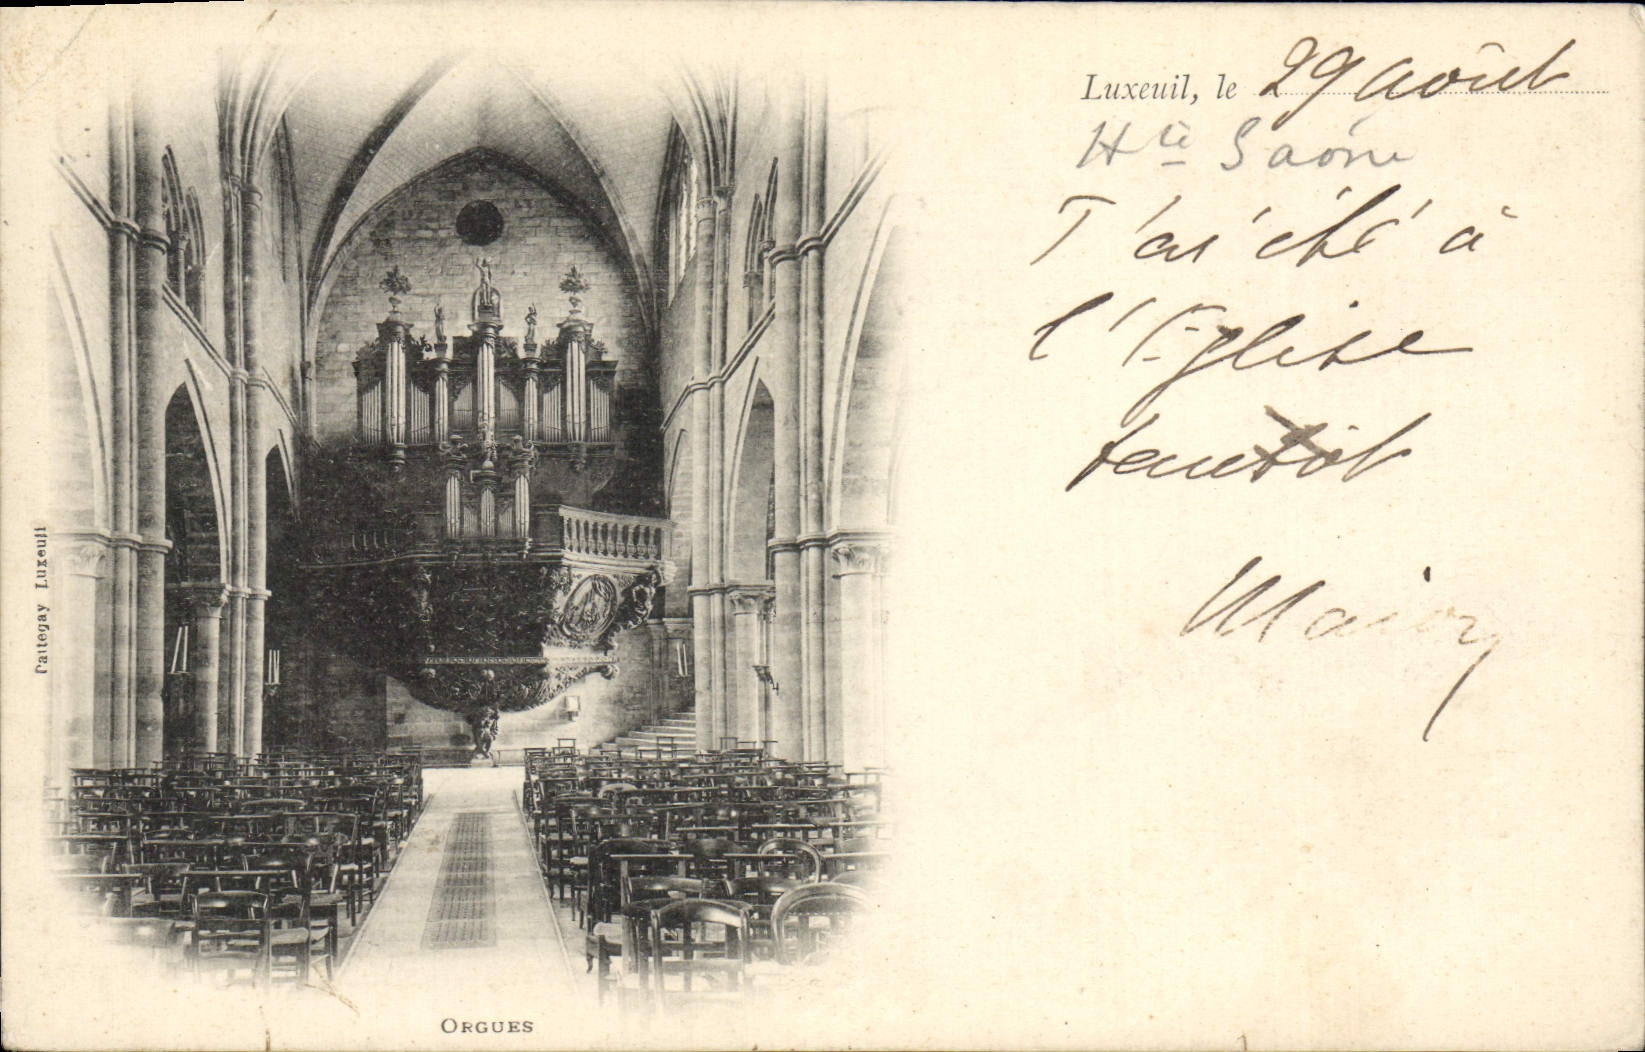 Luxeuil, le 29 août
Hte Saône
J'ai été à
l'Eglise
tantôt
Cattegay Luxeuil
ORGUES